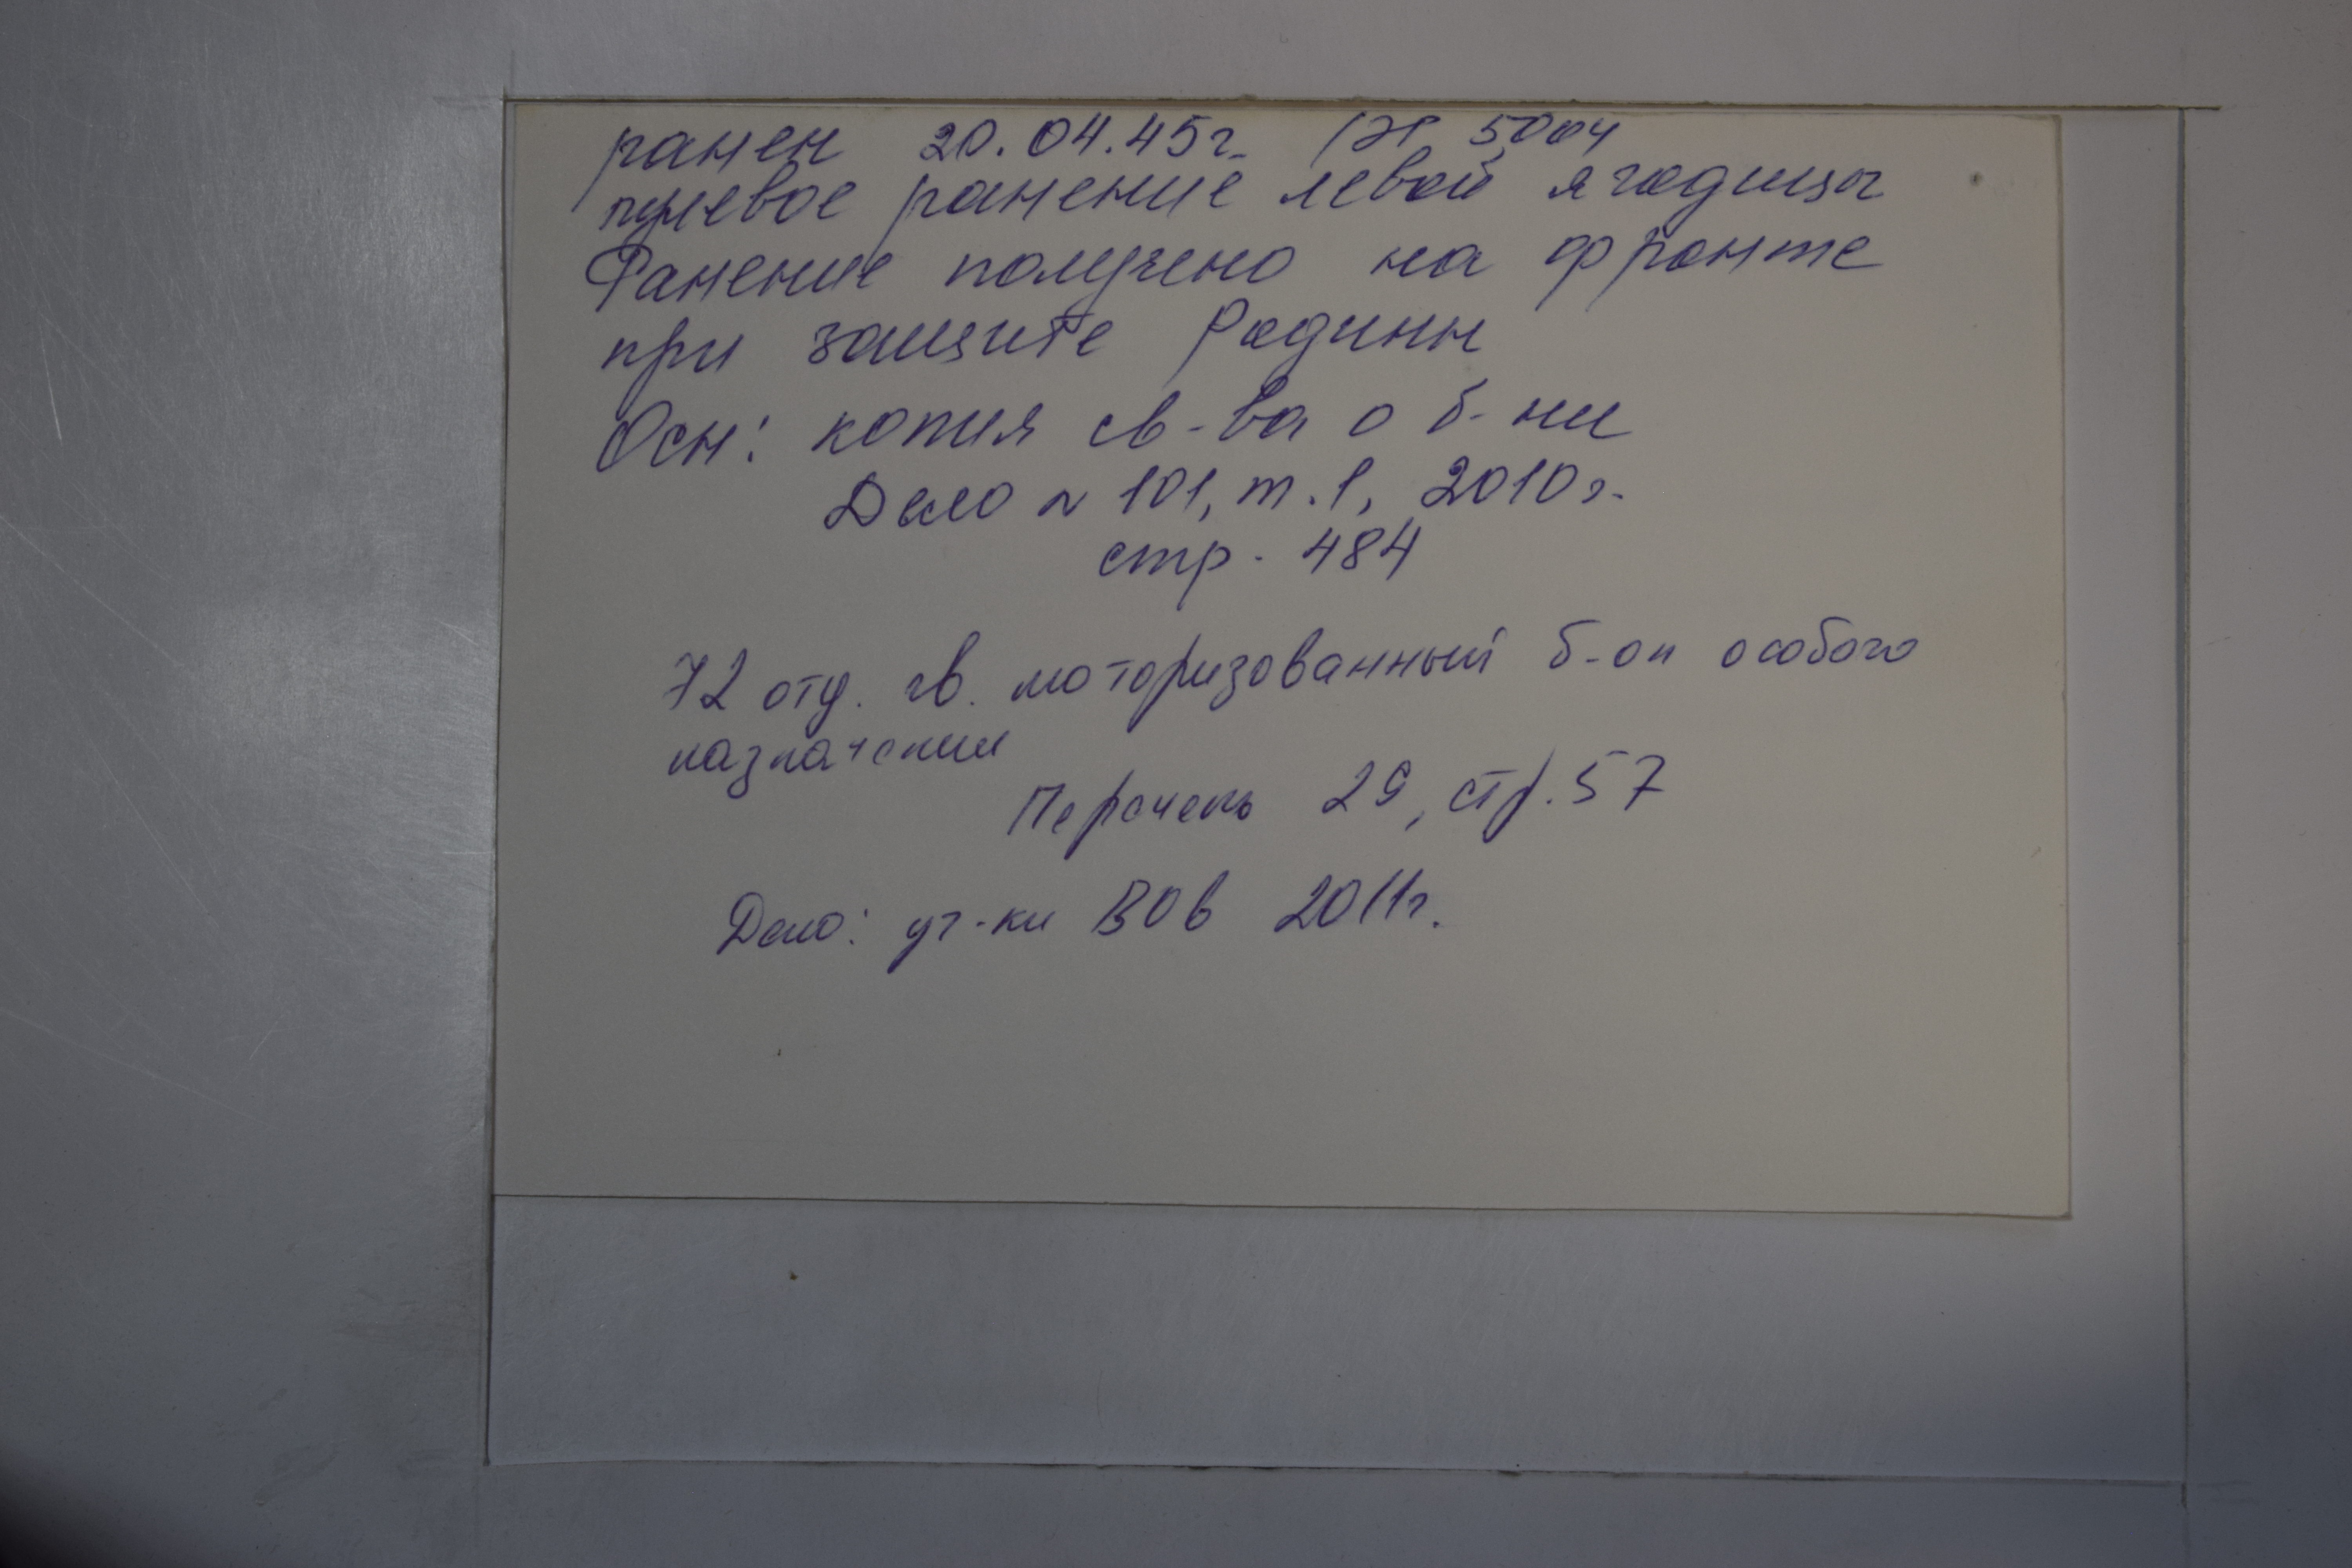 ранен 20.04.45г. (ЭГ 5004
пулевое ранение левой ягодицы
Ранение получено на фронте
при защите Родины
Осн: копия св-ва о б-ни
Дело № 101, т.1, 2010г.
стр. 484
72 отд. гв. моторизованный б-он особого
назначения
Перечень 29, стр. 57
Дело: уч-ки ВОв 2011г.